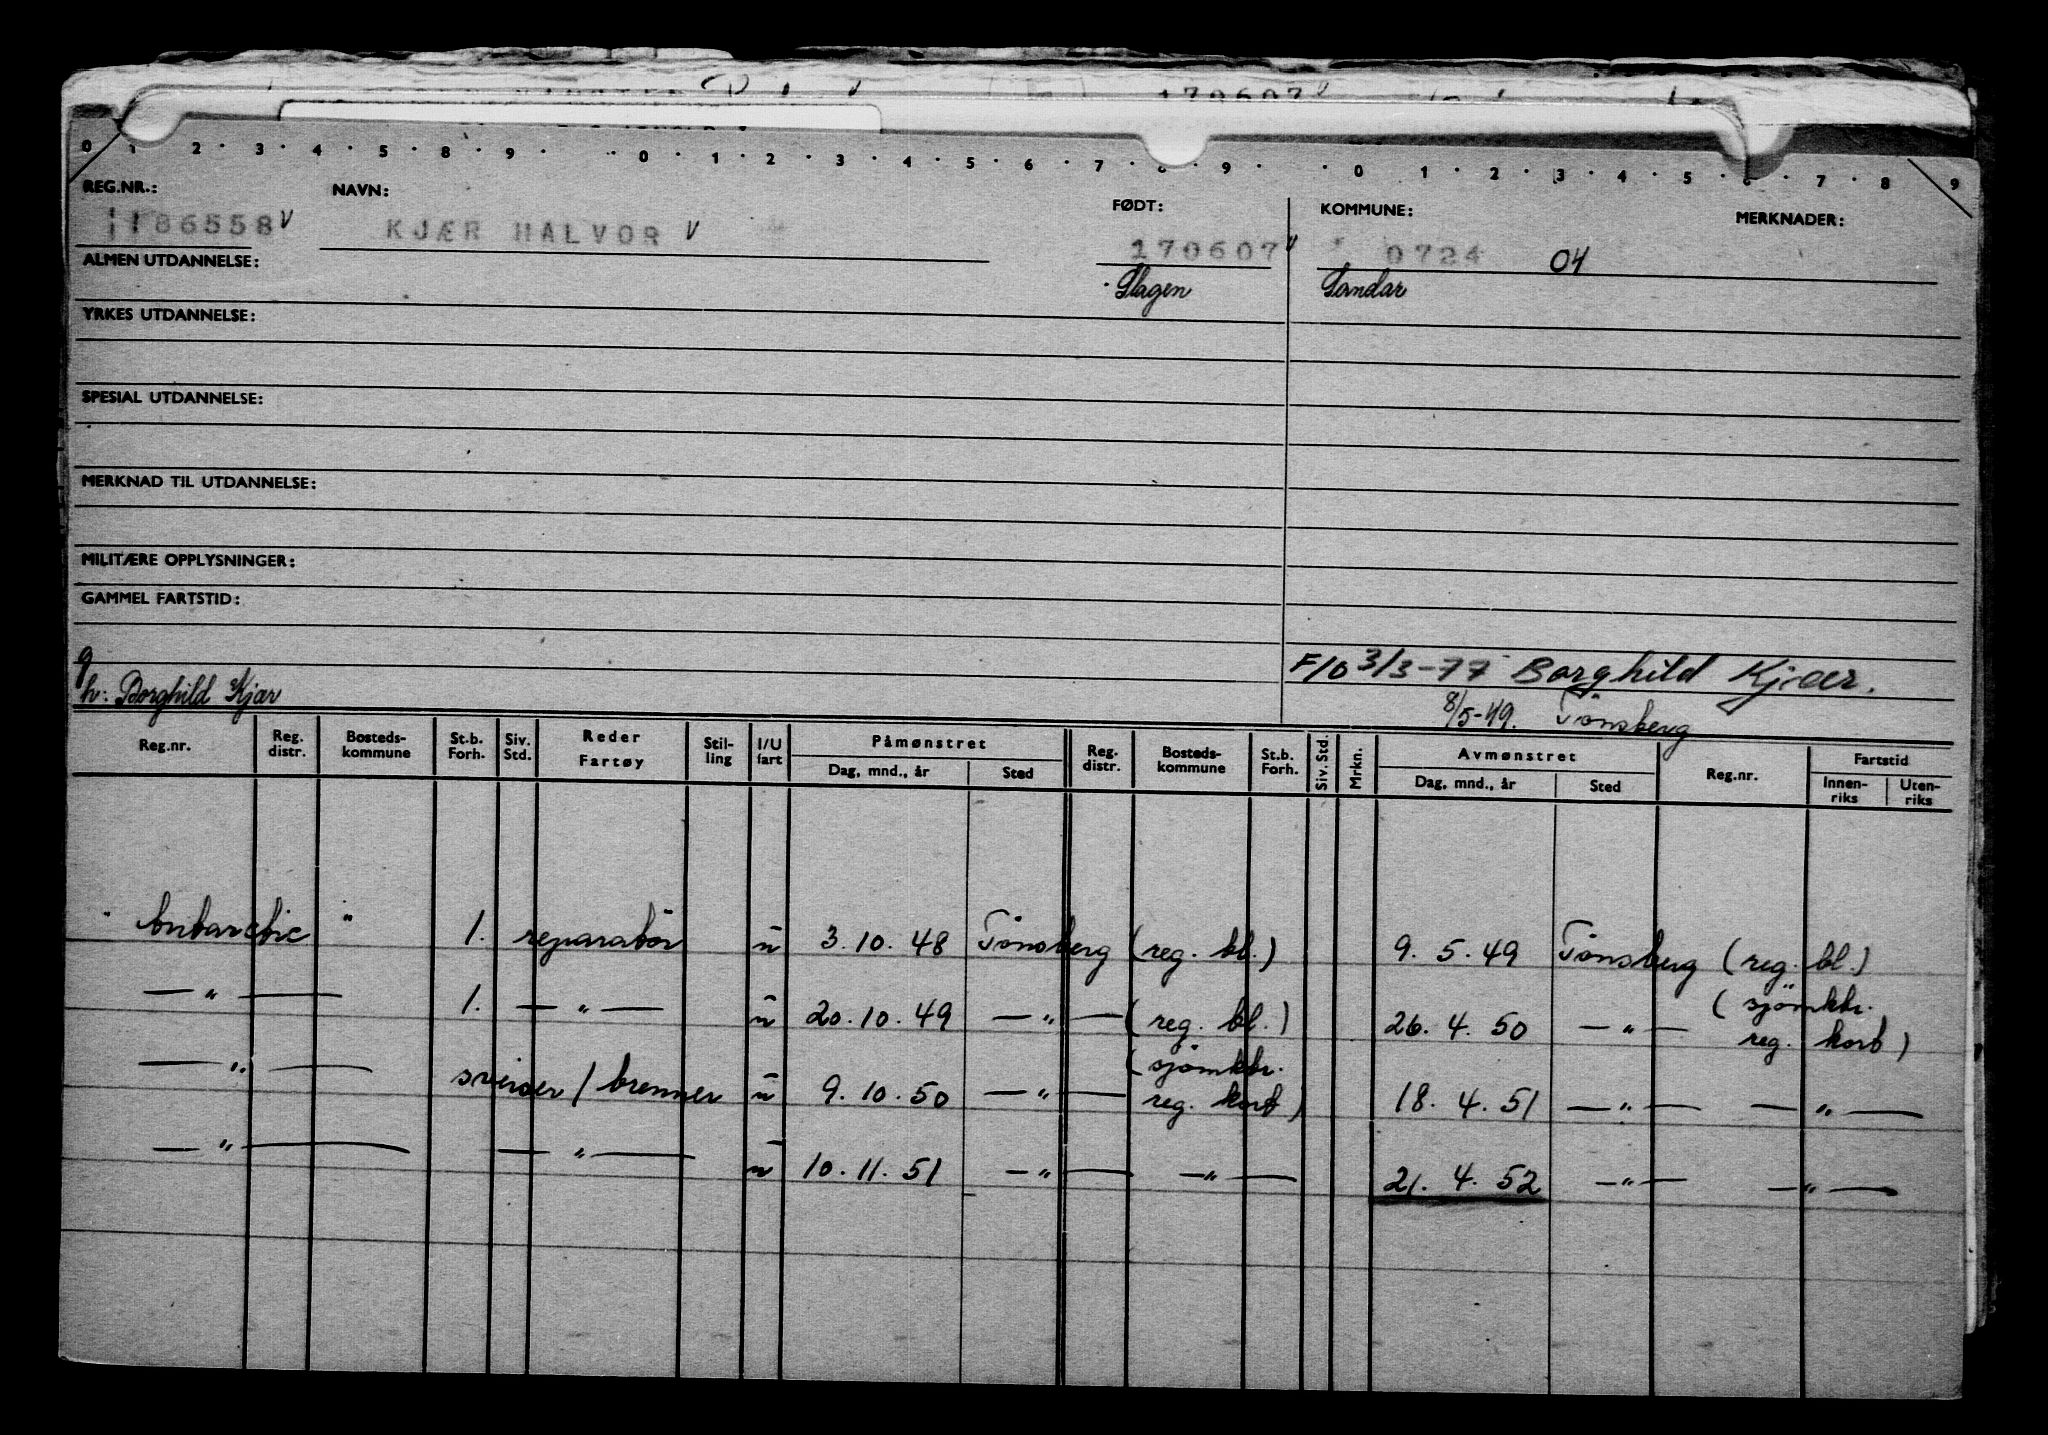 170607 v
0 1 2 · 3 · 4 · 5 · 8 · 9 · · 0 · 1 · 2 · 3 · 4 · 5 · 6 · 7 · 8 · 9 · · 0 · 1 · 2 · 3 · 4 · 5 · 6 · 7 · 8 9
REG.NR.: NAVN: FØDT: KOMMUNE: MERKNADER:
1186558 v KJÆR HALVOR v 170607 v 0724 04
ALMEN UTDANNELSE: Slagen Sandar
YRKES UTDANNELSE:
SPESIAL UTDANNELSE:
MERKNAD TIL UTDANNELSE:
MILITÆRE OPPLYSNINGER:
GAMMEL FARTSTID:
g F/O 3/3-77 Borghild Kjær.
h: Borghild Kjær 8/5-49. Tönsberg
Reg.nr. Reg. distr. Bosteds- kommune St.b. Forh. Siv. Std. Reder Fartøy Stil- ling I/U fart Påmønstret Dag, mnd., år Sted Reg- distr. Bosteds- kommune St.b. Forh. Siv. Std. Mrkn. Avmønstret Dag, mnd., år Sted Reg.nr. Fartstid Innen- riks Uten- riks
" Antarctic " 1. reparatör u 3.10.48 Tönsberg (reg. bl.) 9.5.49 Tönsberg (reg. bl.)
— " — 1. — " — u 20.10.49 — " — (reg. bl.) 26.4.50 — " — (sjömktr. reg. kort)
— " — sveiser / brenner u 9.10.50 — " — (sjömktr. reg. kort) 18.4.51 — " — — " —
— " — — " — u 10.11.51 — " — — " — 21.4.52 — " — — " —